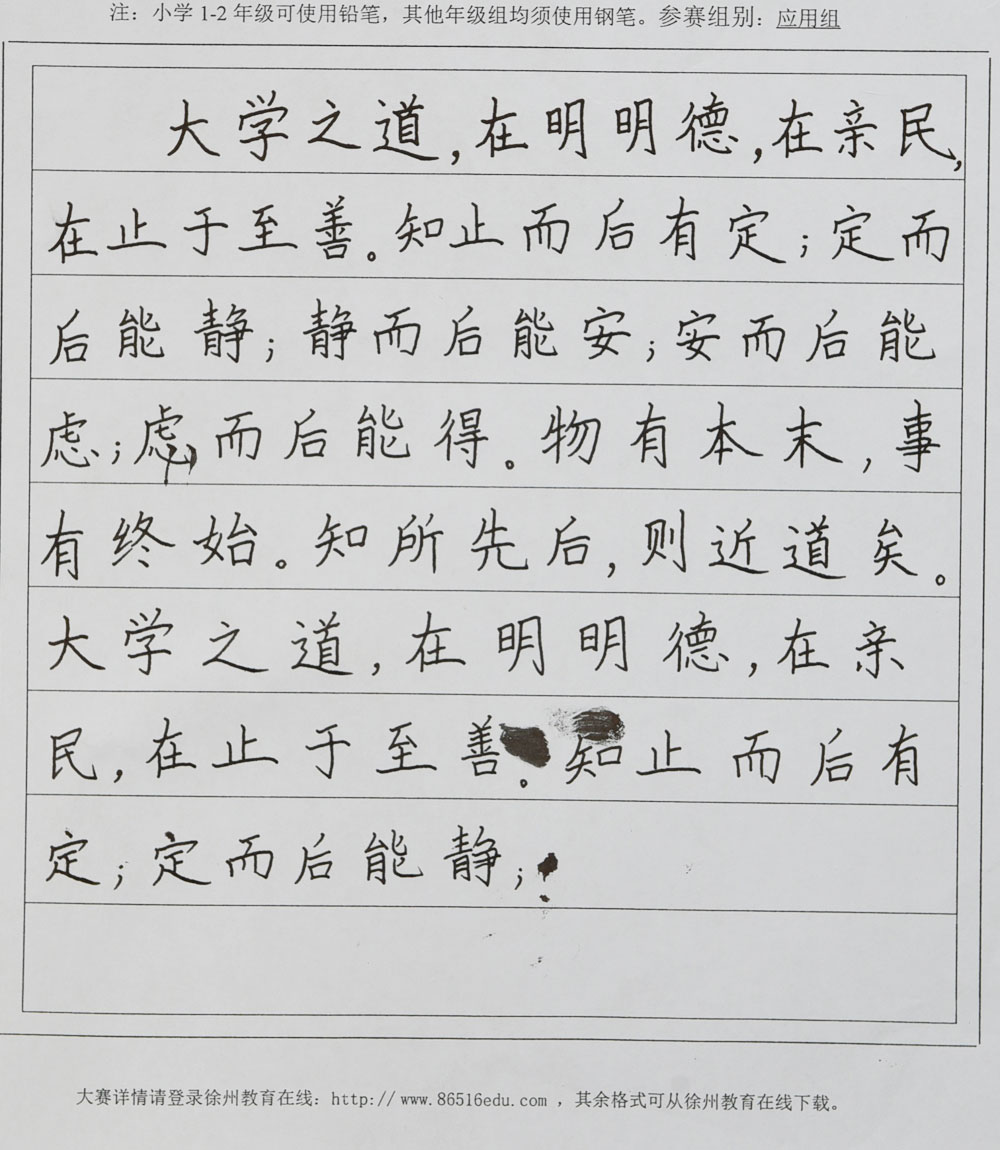 注：小学1-2年级可使用铅笔，其他年级组均须使用钢笔。参赛组别：应用组
大学之道，在明明德，在亲民，
在止于至善。知止而后有定；定而
后能静；静而后能安；安而后能
虑；虑而后能得。物有本末，事
有终始。知所先后，则近道矣。
大学之道，在明明德，在亲
民，在止于至善。知止而后有
定；定而后能静；
大赛详情请登录徐州教育在线：http://www.86516edu.com，其余格式可从徐州教育在线下载。